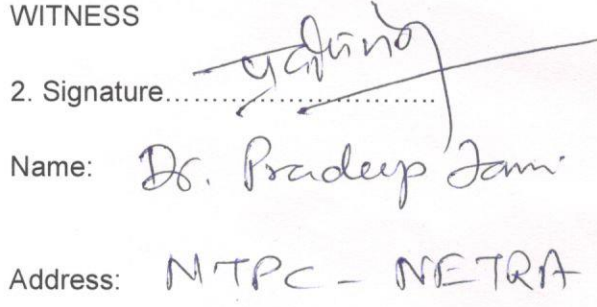 WITNESS
2. Signature....................................
Name: Dr. Pradeep
Address: NTPC - NETRA